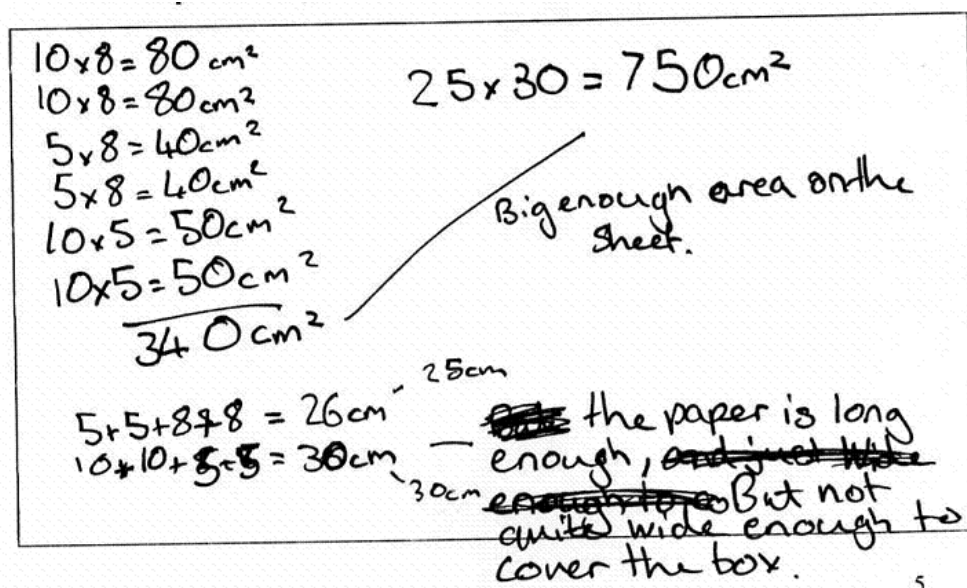 10×8=80cm²
10×8=80cm²
5×8=40cm²
5×8=40cm²
10×5=50cm²
10×5=50cm²
340cm²
25×30=750cm²
Big enough area on the
sheet.
5+5+8+8=26cm
25cm
10+10+5+5=30cm
30cm
the paper is long
enough,
But not
quite wide enough to
cover the box.
5